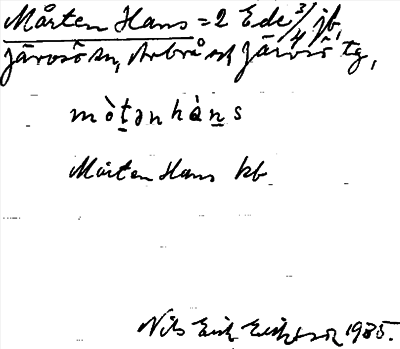 Mårten Hans = 2 Ede 3/4 jb,
Järvsö sn, Arbrå och Järvsö tg,
mò̀tənhàns
Mårten Hans kb
Nils Erik Eriksson 1935.